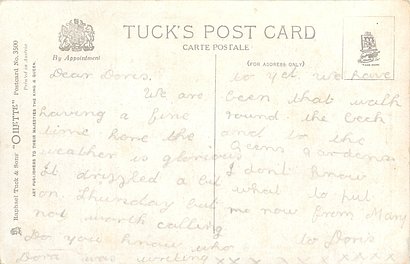 TUCK'S POST CARD
CARTE POSTALE
By Appointment
(FOR ADDRESS ONLY)
Raphael Tuck & Sons' "OILETTE" Postcard No. 3500
Printed in
ART PUBLISHERS TO THEIR MAJESTIES THE KING & QUEEN.
Dear Doris.
We are
having a fine
time here the
weather is glorious
It drizzled a bit
on Thursday but
not worth calling
Do you know who
Dora was writing
to yet. We have
been that walk
round the
and to the
gardens
I don't know
what to put
me now from Mary
to Doris
x x x x x x x x x